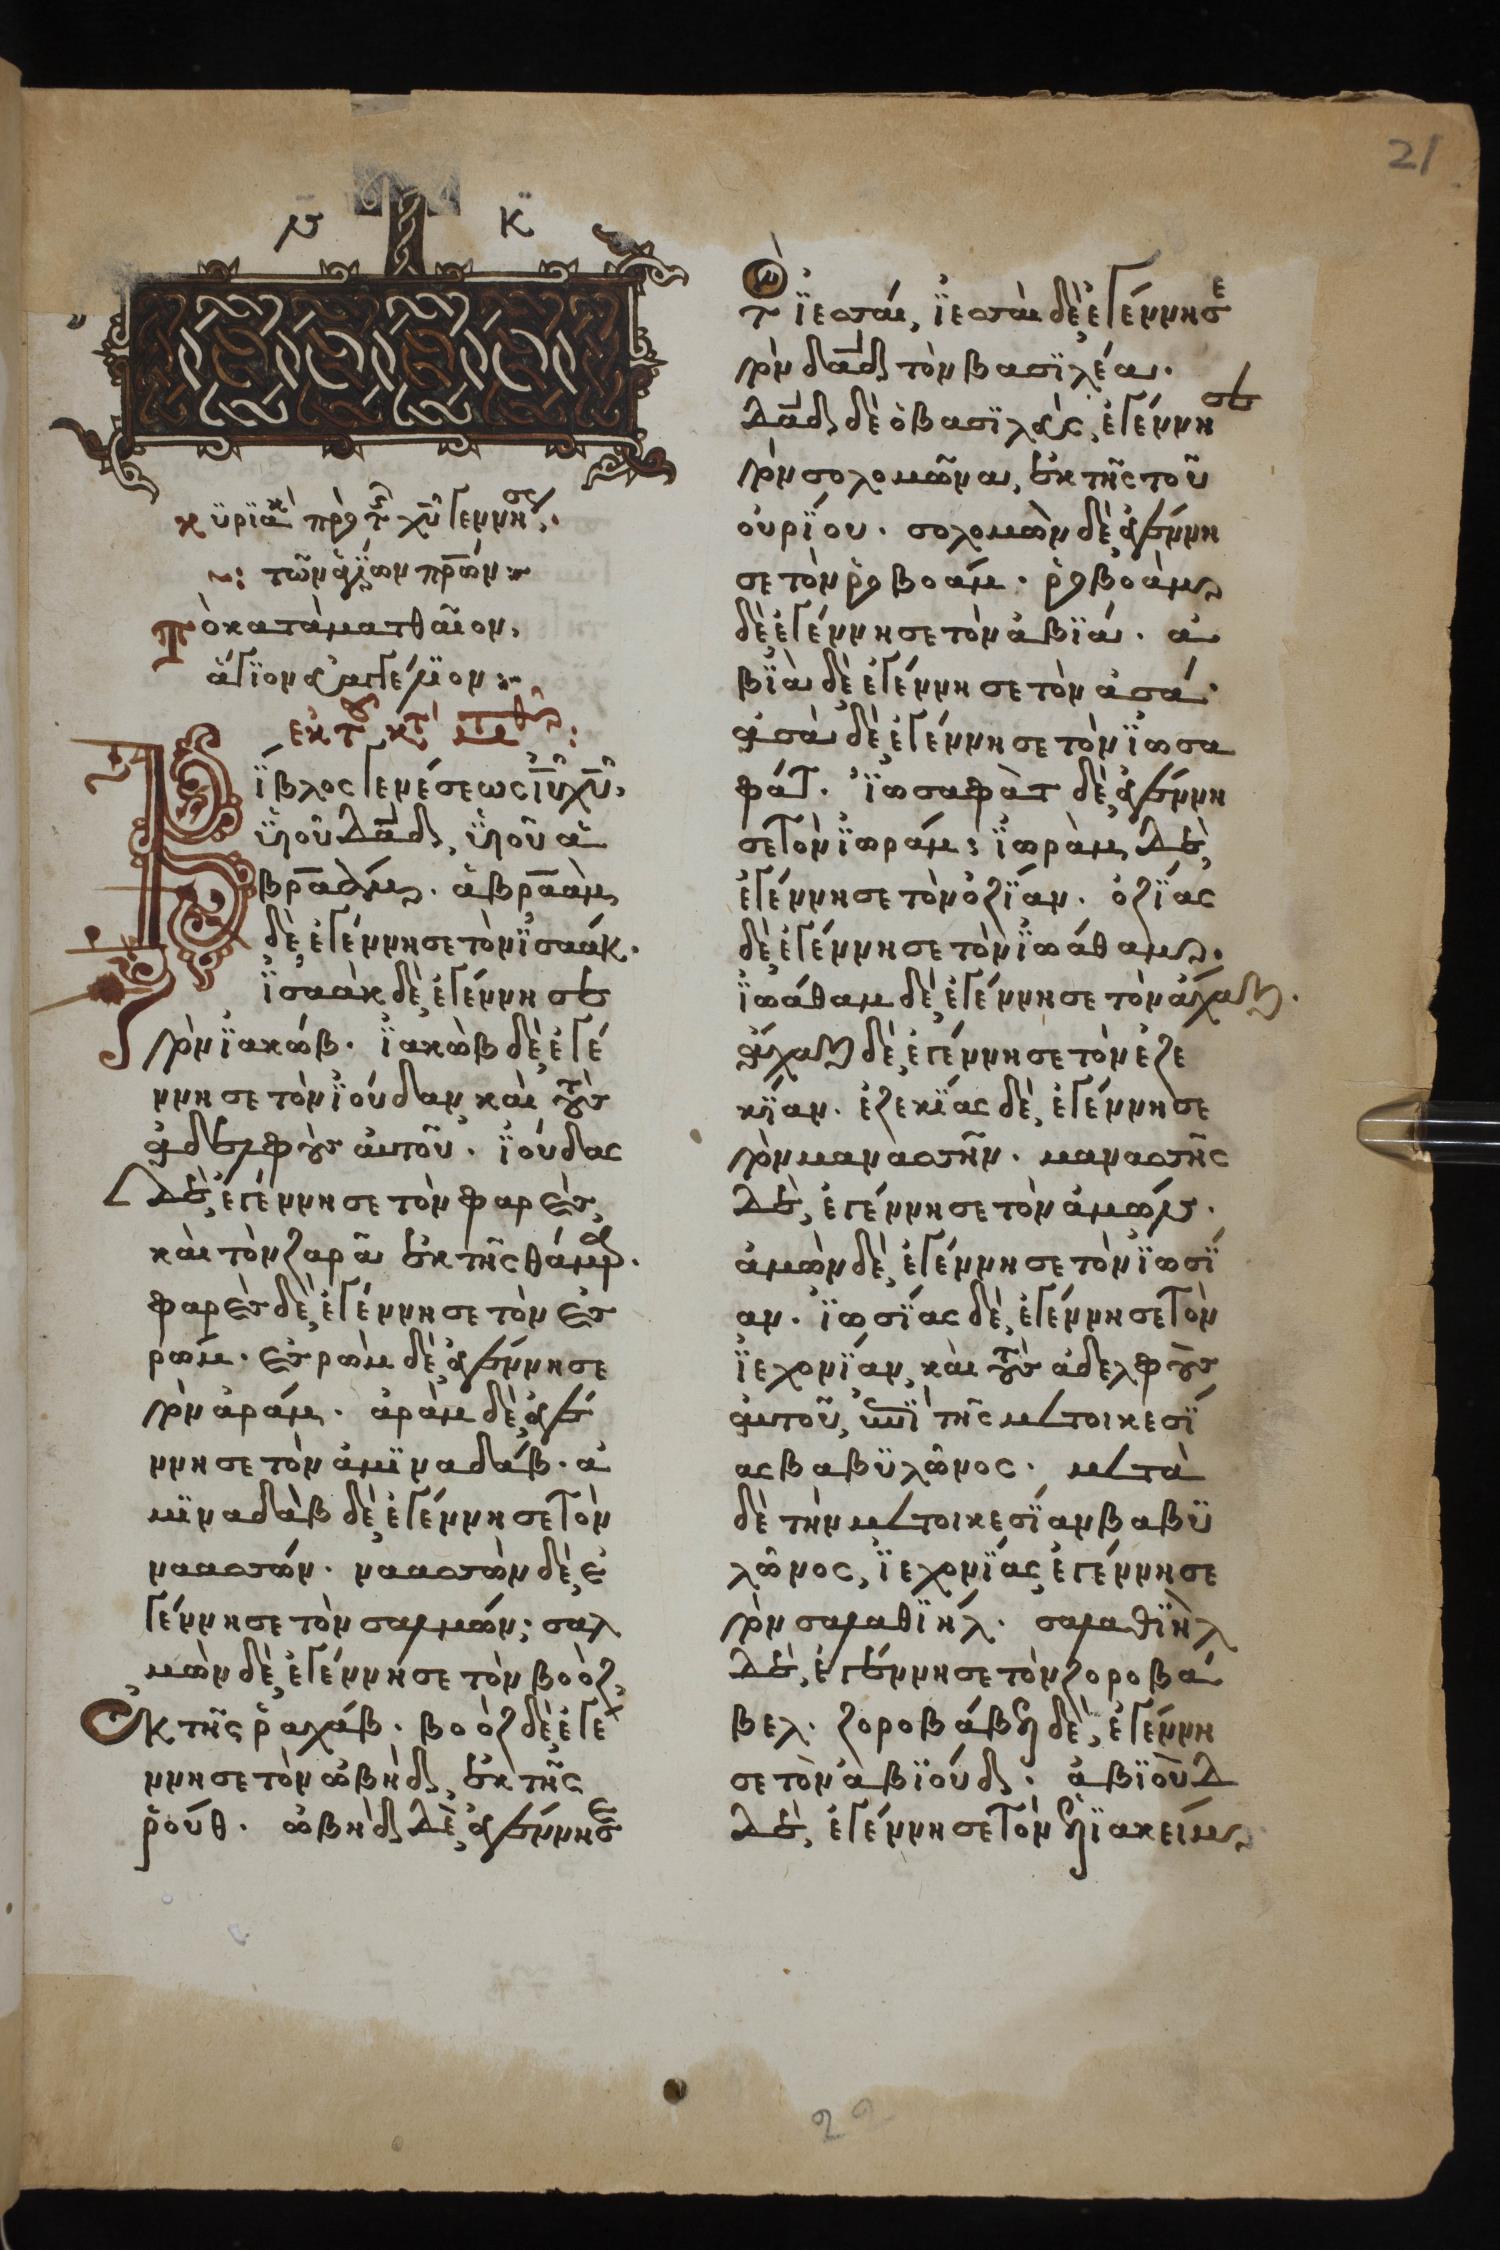 21
κυριακ πρὸ τ χυ γεννησ
τῶν ἁγίων πρων
Τὸ κατὰ ματθαῖον,
ἅγϊον εὐαγγέλϊον
ἐκ τοῦ κτ ματθ
Βΐβλος γενέσεως ϊυ χυ,
ϋἱοῦ δαδ, ϋἱοῦ ἀ
βρααμ. ἀβρααμ
δὲ, ἐγέννησε τὸν ϊσαάκ.
ϊσαὰκ δὲ, ἐγέννησε
τὸν ϊακώβ. ϊακὼβ δὲ, ἐγέ
ννησε τὸν ϊούδαν, καὶ τοὺς
ἀδελφοὺς αὐτοῦ. ϊούδας
δὲ, ἐγέννησε τὸν φαρὲς,
καὶ τὸν ζαρᾶ ἐκ τῆς θάμαρ.
φαρὲς δὲ, ἐγέννησε τὸν ἐσ
ρώμ. ἐσρὼμ δὲ, ἐγέννησε
τὸν ἀράμ. ἀρὰμ δὲ, ἐγέ
ννησε τὸν ἀμϊναδάβ. ἀ
μϊναδὰβ δὲ, ἐγέννησε τὸν
ναασσών. ναασσὼν δὲ, ἐ
γέννησε τὸν σαλμών; σαλ
μὼν δὲ, ἐγέννησε τὸν βοὸζ,
ἐκ τῆς ῥαχάβ. βοὸζ δὲ, ἐγέ
ννησε τὸν ὠβὴδ, ἐκ τῆς
ῥούθ. ὠβὴδ δὲ, ἐγέννησε
τὸν ϊεσσαί, ϊεσσαὶ δὲ, ἐγέννησε
τὸν δαδ τὸν βασϊλέα.
δαδ δὲ ὁ βασϊλεὺς, ἐγέννησε
τὸν σολομῶνα, ἐκ τῆς τοῦ
οὐρΐου. σολομὼν δὲ, ἐγέννη
σε τὸν ῥοβοάμ. ῥοβοὰμ
δὲ, ἐγέννησε τὸν ἀβϊά. ἀ
βϊὰ δὲ, ἐγέννησε τὸν ἀσά.
ἀσὰ δὲ, ἐγέννησε τὸν ϊωσα
φάτ. ϊωσαφὰτ δὲ, ἐγέννη
σε τὸν ϊωράμ; ϊωρὰμ δὲ,
ἐγέννησε τὸν ὀζΐαν. ὀζΐας
δὲ, ἐγέννησε τὸν ϊωάθαμ.
ϊωάθαμ δὲ, ἐγέννησε τὸν ἄχαζ.
ἄχαζ δὲ, ἐγέννησε τὸν ἐζε
κΐαν. ἐζεκΐας δὲ, ἐγέννησε
τὸν μανασσῆν. μανασσῆς
δὲ, ἐγέννησε τὸν ἀμών.
ἀμὼν δὲ, ἐγέννησε τὸν ϊωσΐ
αν. ϊωσΐας δὲ, ἐγέννησε τὸν
ϊεχονΐαν, καὶ τοὺς ἀδελφοὺς
αὐτοῦ, ἐπῒ τῆς μετοικεσΐ
ας βαβϋλῶνος. μετὰ
δὲ τὴν μετοικεσΐαν βαβϋ
λῶνος, ϊεχονΐας ἐγέννησε
τὸν σαλαθϊήλ. σαλαθϊὴλ
δὲ, ἐγέννησε τὸν ζοροβά
βελ. ζοροβάβελ δὲ, ἐγέννη
σε τὸν ἀβϊούδ. ἀβϊοὺδ
δὲ, ἐγέννησε τὸν ἐλϊακείμ,
22